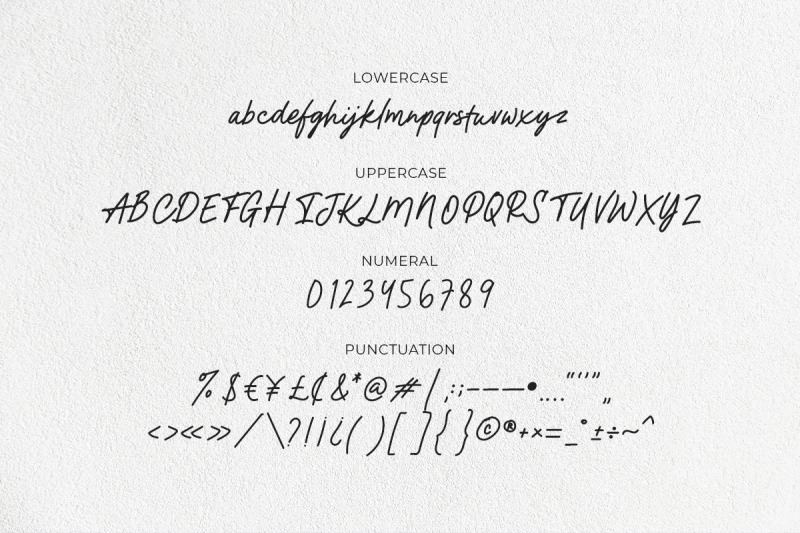 LOWERCASE
abcdefghijklmnpqrstuvwxyz
UPPERCASE
ABCDEFGHIJKLMNOPQRSTUVWXYZ
NUMERAL
0123456789
PUNCTUATION
%$€¥£₵&*@#|,:;-–—•....“‘’”„
<>«»/\?!¡¿()[]{}©®+×=_°±÷~^